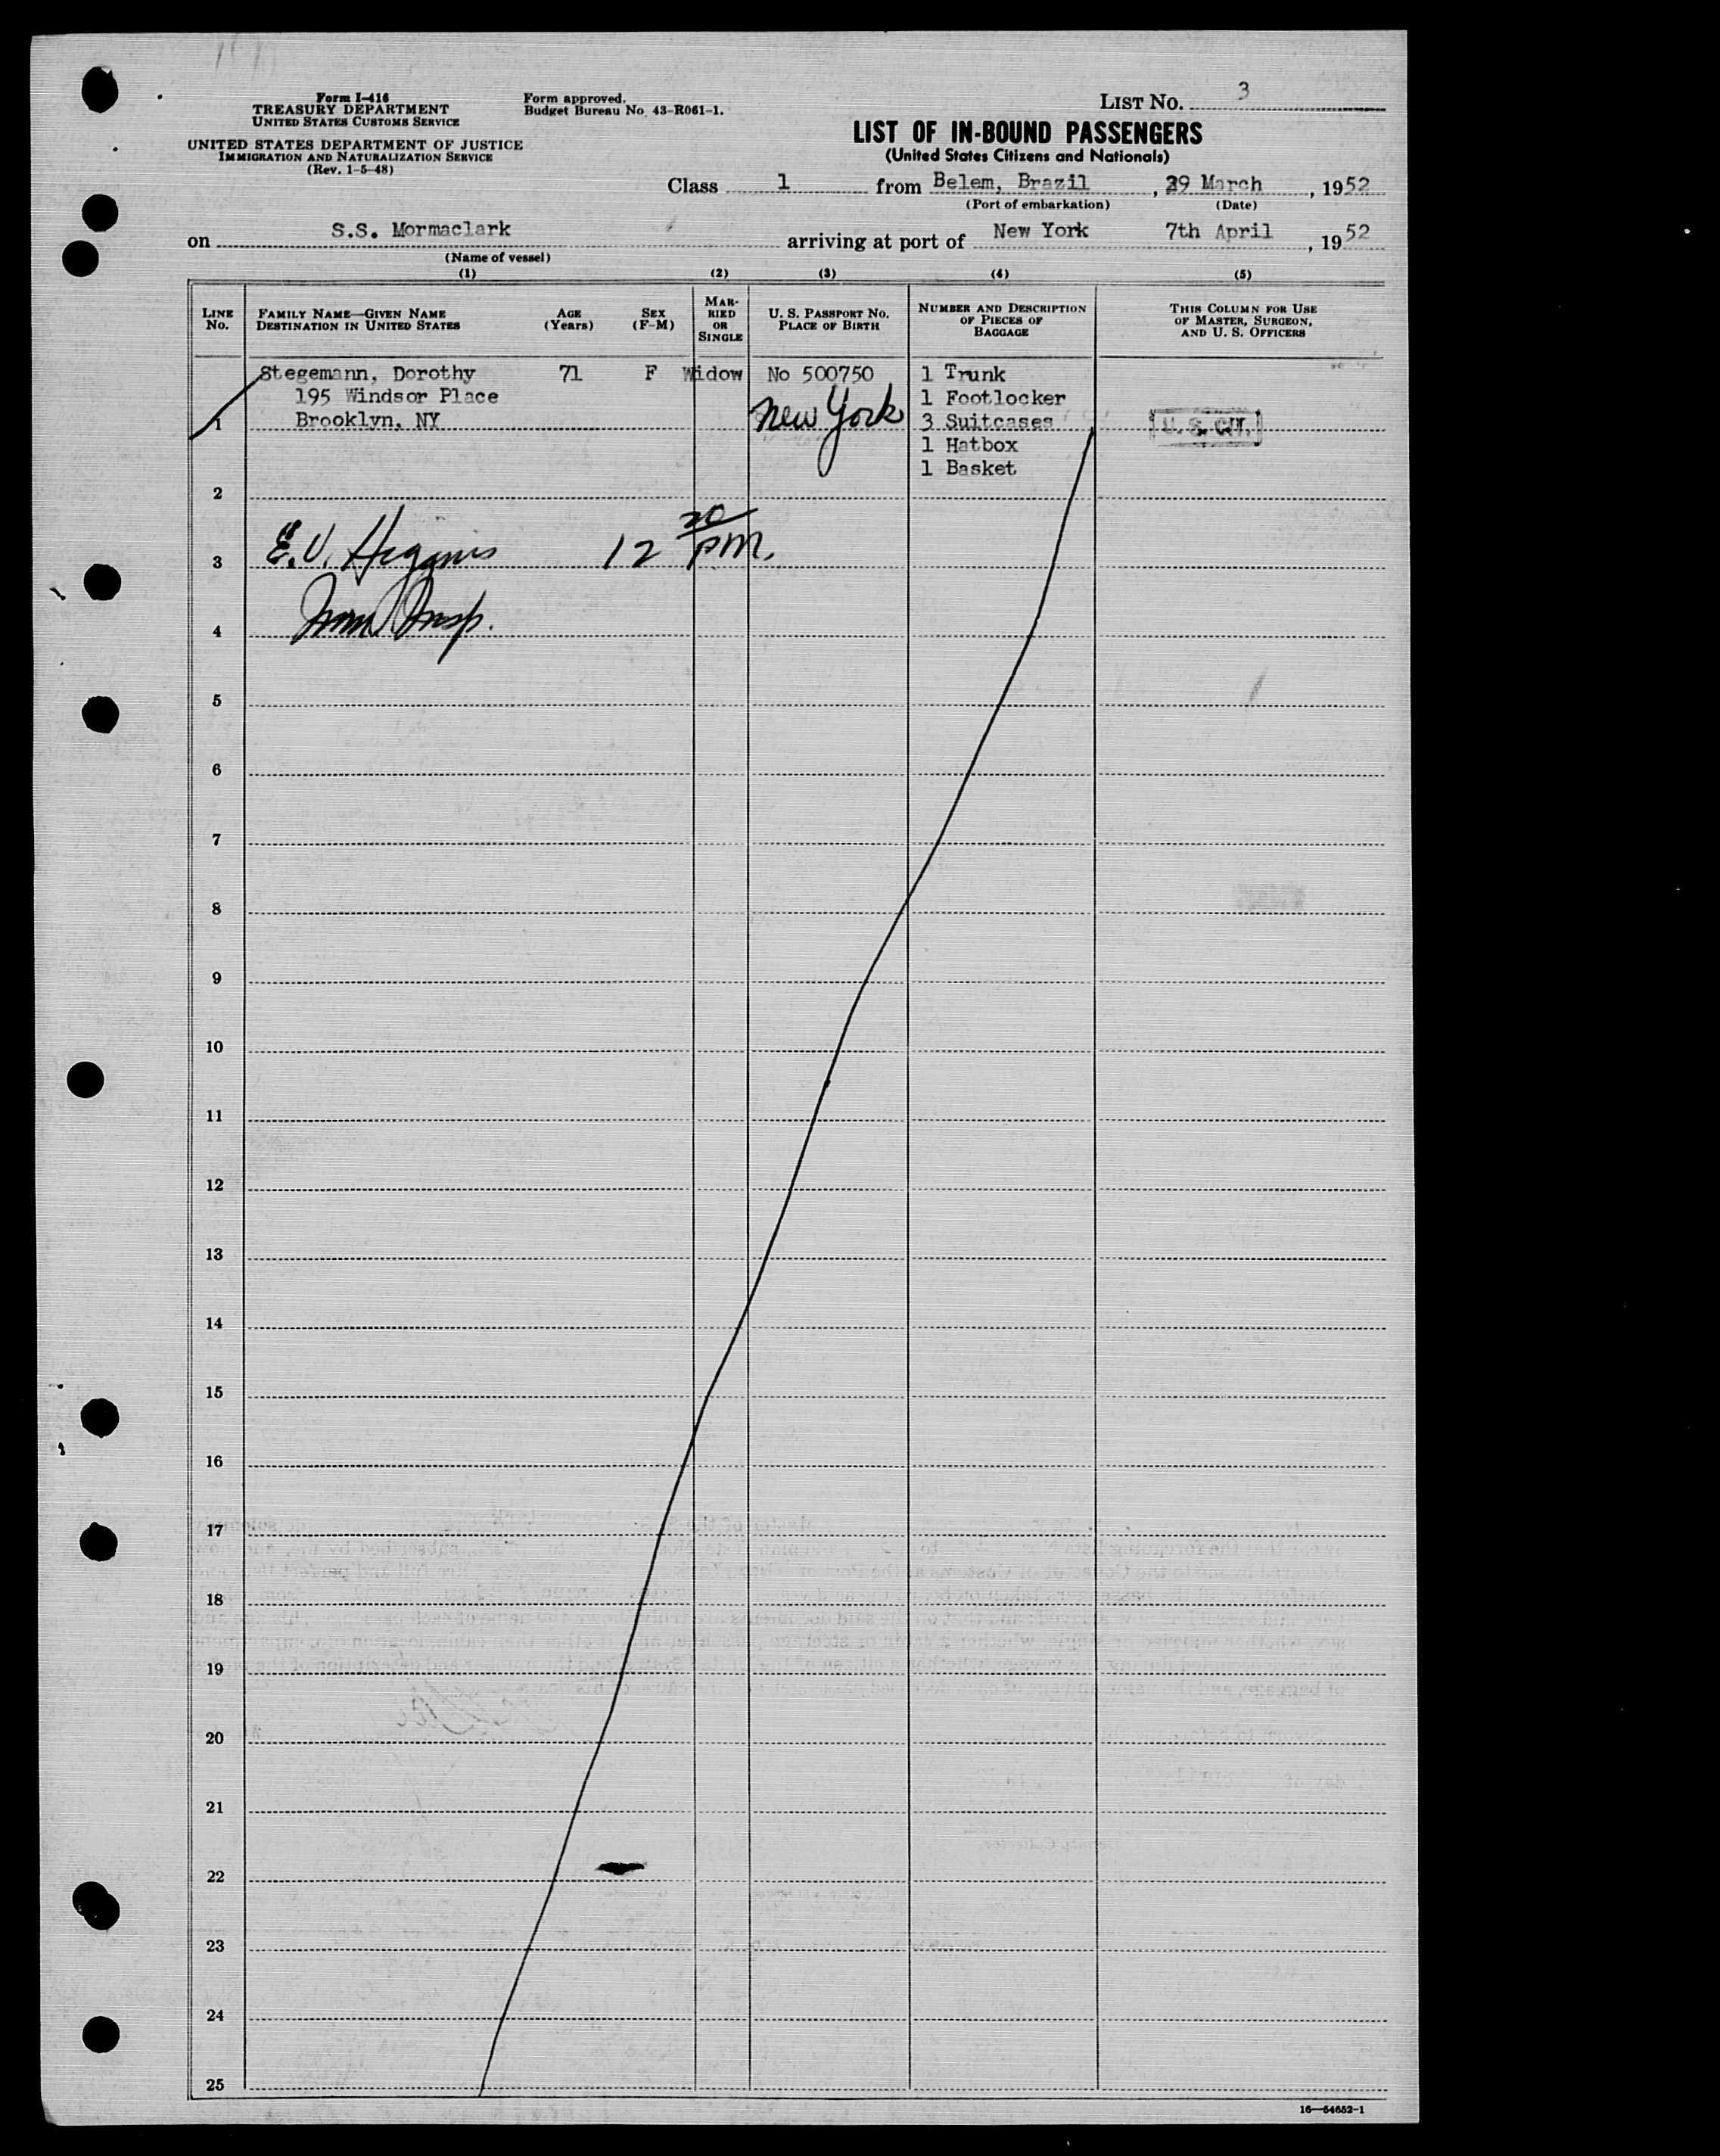 Form I-416
TREASURY DEPARTMENT
UNITED STATES CUSTOMS SERVICE
UNITED STATES DEPARTMENT OF JUSTICE
IMMIGRATION AND NATURALIZATION SERVICE
(Rev. 1-5-48)
Form approved.
Budget Bureau No. 43-R061-1.
LIST NO. 3
LIST OF IN-BOUND PASSENGERS
(United States Citizens and Nationals)
Class 1 from Belem, Brazil, 29 March, 1952
(Port of embarkation) (Date)
on S.S. Mormaclark arriving at port of New York 7th April, 1952
(Name of vessel)
(1) (2) (3) (4) (5)
LINE NO.
FAMILY NAME—GIVEN NAME
DESTINATION IN UNITED STATES
AGE (Years)
SEX (F-M)
MAR-RIED OR SINGLE
U. S. PASSPORT NO.
PLACE OF BIRTH
NUMBER AND DESCRIPTION OF PIECES OF BAGGAGE
THIS COLUMN FOR USE OF MASTER, SURGEON, AND U. S. OFFICERS
Stegemann, Dorothy 71 F Widow No 500750 1 Trunk
195 Windsor Place 1 Footlocker
1 Brooklyn, NY New York 3 Suitcases U. S. CIT.
1 Hatbox
1 Basket
2
E.V. Higgins 12 20 PM.
3
Imm Insp.
4
5
6
7
8
9
10
11
12
13
14
15
16
17
18
19
20
21
22
23
24
25
16—54652-1